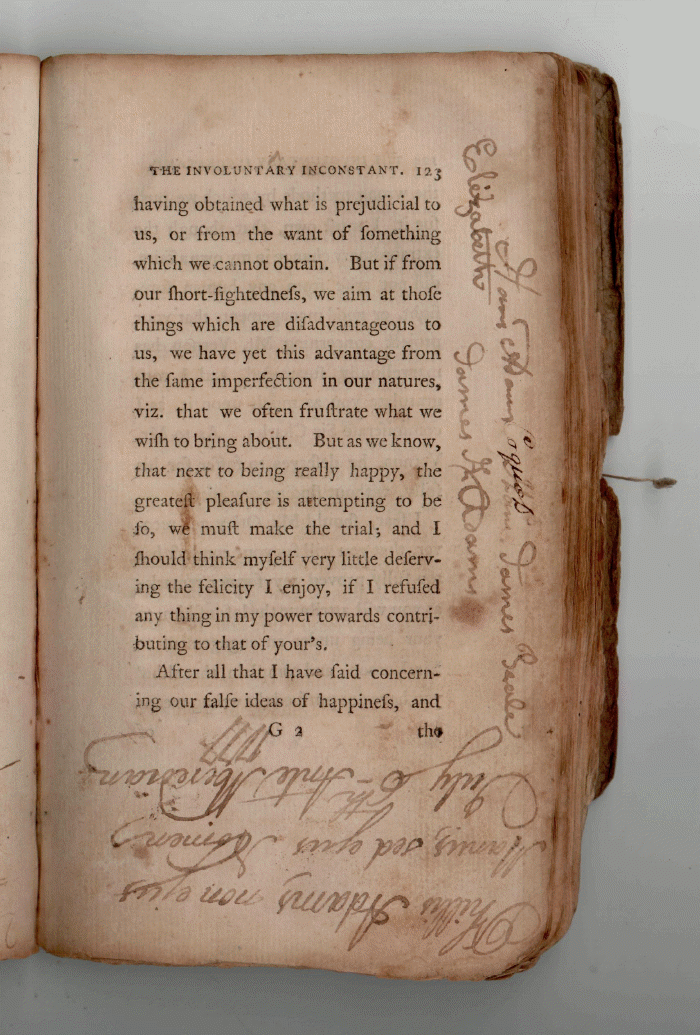 THE INVOLUNTARY INCONSTANT. 123
having obtained what is prejudicial to
us, or from the want of ſomething
which we cannot obtain. But if from
our ſhort-ſightedneſs, we aim at thoſe
things which are diſadvantageous to
us, we have yet this advantage from
the ſame imperfection in our natures,
viz. that we often fruſtrate what we
wiſh to bring about. But as we know,
that next to being really happy, the
greateſt pleaſure is attempting to be
ſo, we muſt make the trial; and I
ſhould think myſelf very little deſerv-
ing the felicity I enjoy, if I refuſed
any thing in my power towards contri-
buting to that of your's.
After all that I have ſaid concern-
ing our falſe ideas of happineſs, and
G 2 the
Elizabeth James Adams
James
Phillis Adams, non ejus
Manus, sed ejus Nomen
July 6th Ante Meridiang